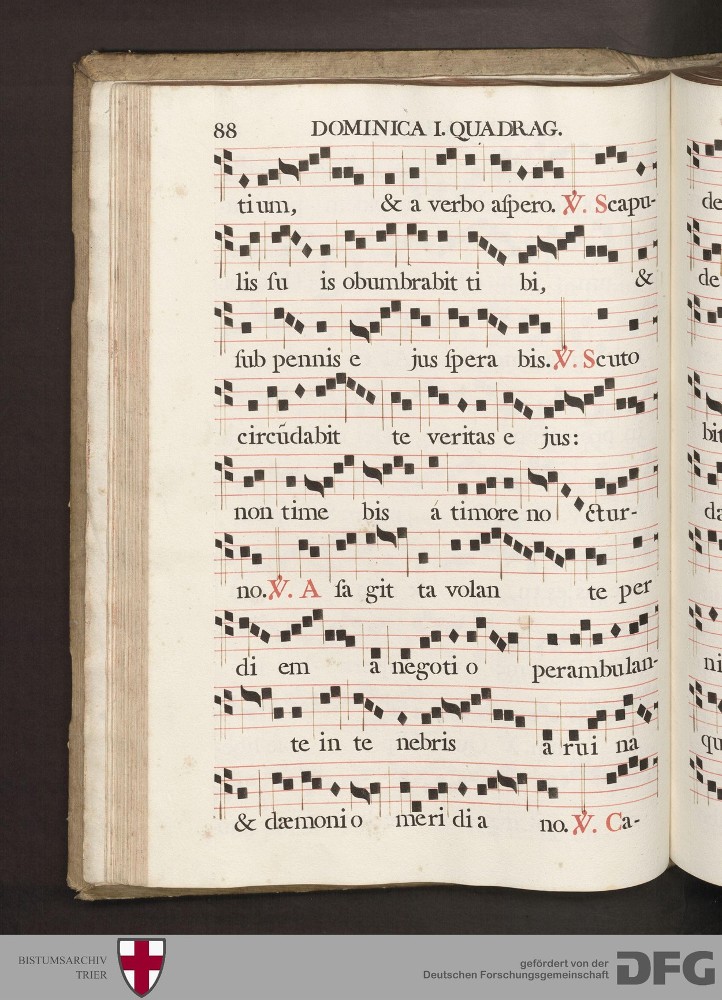 88 DOMINICA I. QUADRAG.
tium, & a verbo aſpero. ℣. Scapu-
lis ſu is obumbrabit ti bi, &
ſub pennis e jus ſpera bis. ℣. Scuto
circũdabit te veritas e jus:
non time bis á timore no ctur-
no. ℣. A ſa git ta volan te per
di em a negoti o perambulan-
te in te nebris a rui na
& dæmoni o meri di a no. ℣. Ca-
de
de
bit
da
ni
qu
BISTUMSARCHIV
TRIER
gefördert von der
Deutschen Forschungsgemeinschaft
DFG